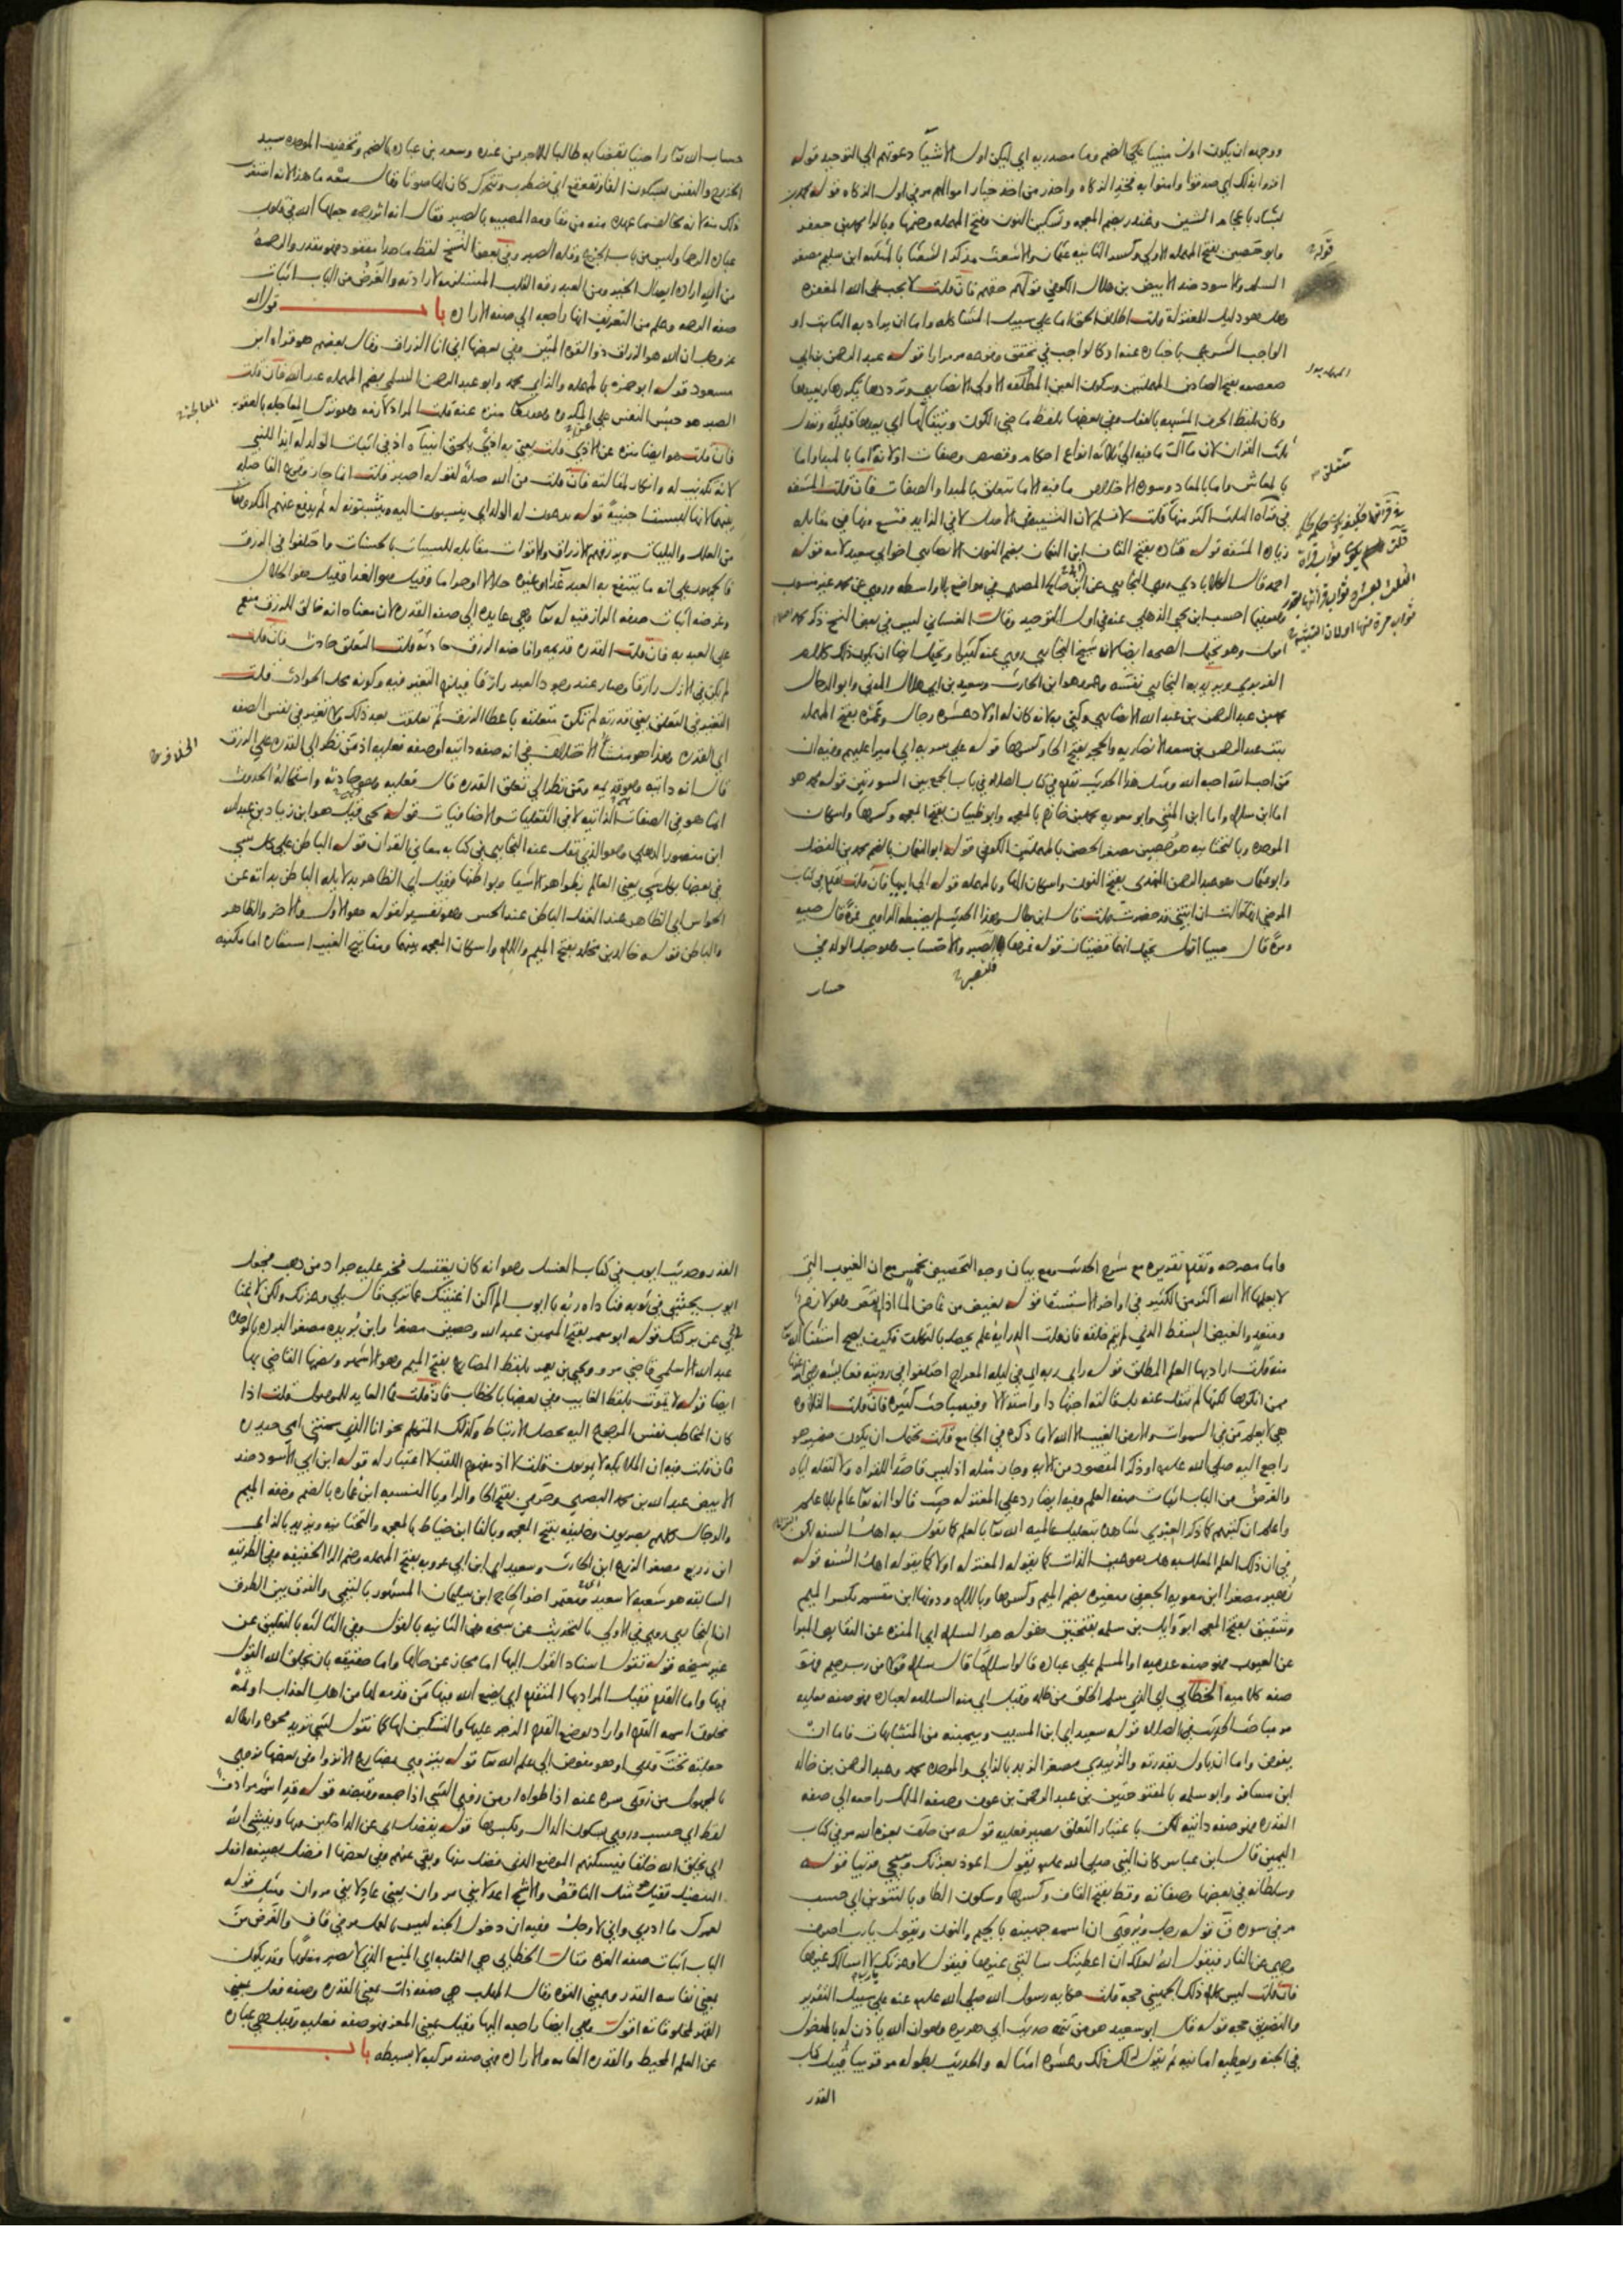 ووجهه ان يكون اول مبنيا على الضم وما مصدريه اي ليكن اول الاشيآ دعوتهم الي التوحيد قوله
اقروا بذلك اي صدقوا وامنوا به فخذ الزكاه واحذر من اخذ خيار اموالهم مر في اول الزكاه قوله محمد بن
بشار باعجام الشين وغندر بضم المعجمه وتسكين النون وفتح المهمله وضمها وبالرا محمد بن جعفر
وابو حصين بفتح المهمله الاولي وكسر الثانيه عثمان والاشعث مذكر الشعثا بالمثلثه ابن سليم مصغر
السلم والاسود ضد الابيض بن هلال الكوفي قوله حقهم فان قلت لا يجب على الله المغفره
وهل هو دليل للمعتزلة قلت اطلاق الحق اما على سبيل المشاكله واما ان يراد به الثابت او
الواجب الشرعي باخباره عنه او كالواجب في تحقق وقوعه مر مرارا قوله عبد الرحمن بن ابي
صعصعه بفتح الصادين المهملتين وسكون العين المهمله الاولى الانصاري ويرددها يكررها ويعيدها
وكان بلفظ الحرف المشبهه بالفعل وفي بعضها بلفظ ماضي الكون ويتقالها اي يعدها قليله وتعدل
ثلث القران لان مآل ما فيه الى ثلاثه انواع احكام وقصص وصفات او لانه اما بالمبدا واما
بالمعاش واما بالمعاد وسورة الاخلاص ما فيه الا ما يتعلق بالمبدا والصفات فان قلت المشقه
في قراه الثلث اكثر منها قلت لا نسلم لان التشبيه في الاصل لا في الزايد فتسع منها في مقابله
زياده المشقه قوله قتاده بفتح القاف ابن النعمان بضم النون الانصاري اخو ابي سعيد لامه قوله
احمد قال الكلاباذي روي البخاري عن ابن صالح المصري في مواضع بلا واسطه وروي عن محمد غير منسوب
الغلول بعشره ثواب قرائتها
الفربري ويريد به البخاري نفسه وعمرو هو ابن الحارث وسعيد بن ابي هلال المدني وابو الرجال
محمد بن عبد الرحمن بن عبد الله الانصاري وكني به لانه كان له اولاد عشره رجال وعمره بفتح المهمله
بنت عبد الرحمن بن سعد الانصاريه والحجر بفتح الحا وكسرها قوله على سريه اي اميرا عليهم وفيه ان
من احب الله احبه الله ومثل هذا الحديث تقدم في كتاب الصلاه في باب الجمع بين السورتين قوله محمد هو
اما ابن سلام واما ابن المثني وابو معويه محمد بن خازم بالمعجمه وابو ظبيان بفتح المعجمه وكسرها واسكان
الموحده وبالتحتانيه هو حصين مصغر الحصن بالمهملتين الكوفي قوله ابو النعمان بالضم محمد بن الفضل
وابو عثمان هو عبد الرحمن النهدي بفتح النون واسكان الها وبالمهمله قوله الى ابنها فان قلت تقدم في كتاب
المرضي انها قالت ان ابنتي قد حضرت قلت قال ابن بطال وهذا الحديث لم يضبطه الراوي فمرة قال صبيه
ومرة قال صبيا اقول يحتمل انهما قضيتان قوله فمرها فلتصبر والاحتساب هو جعل الولد في
حساب
حساب الله تعا راضيا بقضايه طالبا للاجر من عنده وسعد بن عباده بالضم وتخفيف الموحده سيد
الخزرج والنفس بسكون الفا وتقعقع اي تضطرب وتتحرك كان لها صوتا وقال سعد ما هذا لانه استغرب
ذلك منه لانه يخالف ما عهده منه من مقاومه المصيبه بالصبر فقال انه اثر رحمه جعلها الله في قلوب
عباده الرحما وليس من باب الجزع وقله الصبر وفي بعض النسخ لفظ ما هذا مفقود فهو مقدر والرحمه
من الله اراده ايصال الخير ومن العبد رقه القلب المستلزمه لارادته والغرض من الباب اثبات
صفه الرحمه وعلم من التعريف انها راجعه الى صفه الاراده باب قول الله
عز وجل ان الله هو الرزاق ذو القوه المتين وفي بعضها اني انا الرزاق وقال بعضهم هو قراه ابن
مسعود قوله ابو حمزه بالمهمله والزاي محمد وابو عبد الرحمن السلمي بضم المهمله عبد الله فان قلت
الصبر هو حبس النفس على المكروه والله تعا منزه عنه قلت المراد لازمه وهو ترك المعاجله بالعقوبه
فان قلت هو ايضا منزه عن الاذي قلت يعني به اذي يلحق انبياه اذ في اثبات الولد له ايذا للنبي
لانه تكذيب له وانكار لمقالته فان قلت من الله صله لقوله اصبر قلت انما جاز وقوع الفاصله
بينهما لانها ليست اجنبية قوله يدعون له الولد اي ينسبون اليه ويثبتونه له ثم يدفع عنهم المكروهات
من العلل والبليات ويرزقهم الارزاق والاقوات مقابله للسيئات بالحسنات واختلفوا في الرزق
فالجمهور على انه ما ينتفع به العبد غذا او غيره حلالا او حراما وقيل هو الغذا وقيل هو الحلال
وغرضه اثبات صفه الرازقيه له تعا وهي عايده الى صفه القدره لان معناه انه خالق للرزق منعم
على العبد به فان قلت القدره قديمه وافاضه الرزق حادثه قلت التعلق حادث فان قلت
لم يكن في الازل رازقا وصار عند وجود العبد رازقا فيلزم التغير فيه وكونه محل الحوادث قلت
التغير في التعلق يعني قدرته لم تكن متعلقه باعطا الرزق ثم تعلقت بعد ذلك ولا تغير في نفس الصفه
اي القدره وهذا هو منشأ الاختلاف في انه صفه ذاتيه او صفه فعليه اذ من نظر الى القدره على الرزق
قال انه ذاتيه وهو قديمه ومن نظر الي تعلق القدره قال فعليه وهو حادثه واستحاله الحدوث
انما هو في الصفات الذاتيه لا في الفعليات والاضافيات قوله يحيى قيل هو ابن زياد بن عبد الله
ابن منصور الديلمي وهو الذي نقل عنه البخاري في كتابه معاني القران قوله الباطن على كل شي
في بعضها بكل شي يعني العالم بظواهر الاشيا وبواطنها وقيل اي الظاهر بدلايله الباطن بذاته عن
الحواس اي الظاهر عند العقل الباطن عند الحس وهو تفسير لقوله هو الاول والاخر والظاهر
والباطن قوله خالد بن مخلد بفتح الميم واللام واسكان المعجمه بينهما ومفاتيح الغيب استعاره اما مكنيه
واما مصرحه وتقدم تقريره مع شرح الحديث ومع بيان وجه التخصيص بخمس مع ان الغيوب التي
لا يعلمها الا الله اكثر من الكثير في اواخر الاستسقا قوله بغيض من غاض الما اذا نقص وهو لازم
ومتعد والغيض السقط الذي لم يتم خلقه فان قلت
منه قلت اراد بها العلم المطلق قوله راي ربه اي في ليله المعراج اختلفوا في رويته فعايشه رضي الله عنها
ممن انكرها لكنها لم تنقل عنه بل قالته اجتهادا واستدلالا وفيه مباحث كثيره فان قلت التلاوه
هي لا يعلم من في السموات والارض الغيب الا الله لا ما ذكره في الجامع قلت يحتمل ان يكون ضمير هو
راجع اليه صلى الله عليه او ذكر المقصود من الايه وجاز مثله اذ ليس قاصدا للقراه ولا لنقله اياه
والغرض من الباب اثبات صفه العلم وفيه ايضا رد على المعتزله حيث قالوا انه تعا عالم بلا علم
في ان ذلك العلم المعلل به هل هو عين الذات كما يقوله المعتزله او لا كما يقوله اهل السنه قوله
زهير مصغرا ابن معويه الجعفي ومغيره بضم الميم وكسرها وباللام ودونها ابن مقسم بكسر الميم
وشقيق بفتح المعجمه ابو وايل بن سلمه بفتحتين قوله هو السلام اي المنزه عن النقايص المبرا
عن العيوب فهو صفه عدميه او المسلم على عباده قالوا سلاما قال سلام قولا من رب رحيم فهو
صفه كلاميه الخطابي اي الذي سلم الخلق من ظلمه وقيل اي منه السلامه لعباده فهو صفه فعليه
مر مباحث الحديث في الصلاه قوله سعيد اي ابن المسيب وبيمينه من المتشابهات فاما ان
يفوض واما ان ياول بقدرته والزبيدي مصغر الزبد بالزاي والموحده محمد وعبد الرحمن بن خالد
ابن مسافر وابو سلمه بالمفتوحتين بن عبد الرحمن بن عوف وصفه الملك راجعه الى صفه
القدره فهو صفه ذاتيه لكن باعتبار التعلق يصير فعليه قوله من حلف بعزه الله مر في كتاب
اليمين قال ابن عباس كان النبي صلى الله عليه يقول اعوذ بعزتك وسيجي قريبا قوله
وسلطانه في بعضها وصفاته وقط بفتح القاف وكسرها وسكون الطا وبالتنوين اي حسب
مر في سوره ق قوله رجل ويروى ان اسمه جهينه بالجيم والنون ويقول يا رب اصرف
وجهي عن النار فيقول الله لعلك ان اعطيتك سالتني غيرها فيقول لا وعزتك لا اسالك غيرها
فان قلت ليس كلام ذلك الجهني حجه قلت حكايه رسول الله صلى الله عليه عنه على سبيل التقرير
والتصديق حجه قوله قال ابو سعيد هو من تتمه حديث ابي هريره وهو ان الله ياذن له بالدخول
في الجنه ويعطيه امانيه ثم يقول لك ذلك وعشره امثاله والحديث بطوله مر قريبا قبيل كتاب
القدر
القدر وحديث ايوب في كتاب الغسل وهو انه كان يغتسل فخر عليه جراد من ذهب فجعل
ايوب يحتثي في ثوبه فناداه ربه يا ايوب الم اكن اغنيتك عما ترى قال بلى وعزتك ولكن لا غنا
بي عن بركتك قوله ابو معمر بفتح الميمين عبد الله وحصين مصغرا وابن بريده مصغر البرده بالموحده
عبد الله الاسلمي قاضي مرو ويحيى بن يعمر بلفظ المضارع بفتح الميم وهو الاشهر وبضمها القاضي بها
ايضا قوله لا يموت بلفظ الغايب وفي بعضها بالخطاب فان قلت فما العايد للموصول قلت اذا
كان المخاطب نفس المرجوع اليه يحصل الارتباط وكذلك المتكلم نحو انا الذي سمتني امي حيدره
فان قلت فيه ان الملايكه لا يموتون قلت لا اذ مفهوم اللقب لا اعتبار له قوله ابن ابي الاسود ضد
الابيض عبد الله بن محمد البصري وحرمي بفتح الحا والرا وبا النسبه ابن عماره بالضم وخفه الميم
والرجال كلهم بصريون وخليفه بفتح المعجمه وبالفا ابن خياط بالمعجمه والتحتانيه ويزيد بالزاي
ابن زريع مصغر الزرع ابن الحارث وسعيد اي ابن ابي عروبه بفتح المهمله وضم الرا الخفيفه وفي الطريقه
السابقه هو شعبه لا سعيد ومعتمر اخو الحاج ابن سليمان المشهور بالتيمي والفرق بين الطرق
ان البخاري روى في الاولى بالتحديث عن شيخه وفي الثانيه بالقول وفي الثالثه بالتعليق عن
غير شيخه قوله تقول اسناد القول اليها اما مجاز عن حالها واما حقيقه بان يخلق الله القول
فيها واما القدم فقيل المراد بها المتقدم اي يضع الله فيها من قدمه لها من اهل العذاب او ثمة
مخلوق اسمه القدم او اراد بوضع القدم الزجر عليها والتسكين لها كما تقول لشي تريد محوه وابطاله
جعلته تحت قدمي او هو مفوض الى علم الله تعا قوله ينزوي مضارع الانزوا وفي بعضها تزوي
بالمجهول من زوى سره عنه اذا طواه او من زوي الشي اذا جمعه وقبضه قوله قد اسم مرادف
لقط اي حسب وروي بسكون الدال وبكسرها قوله بفضل اي عن الداخلين فيها وينشي الله
اي يخلق الله خلقا فيسكنهم الموضع الذي فضل منها وبقي عنهم وفي بعضها افضل بصيغه افعل
التفضيل فقيل هو مثل الناقص والاشج اعدلا بني مروان يعني عادلا بني مروان ومثل قوله
لعمرك ما ادري واني لاوجل وفيه ان دخول الجنه ليس بالعمل مر في قاف والغرض من
الباب اثبات صفه العزه وقال الخطابي هي الغلبه اي المنيع الذي لا يصير مغلوبا وقد يكون
يعني نفاسه القدر وبمعنى القوه وقال المهلب هي صفه ذات بمعنى القدره وصفه فعل بمعنى
القهر لمخلوقاته اقول وهي ايضا راجعه اليها وقيل بمعنى المعز فهو صفه فعليه وقيل هي عباره
عن العلم المحيط والقدره العامه والاراده فهي صفه مركبه لا بسيطه باب